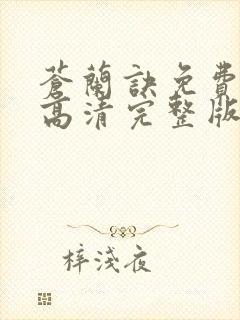 蒼蘭訣免費
高清完整版
梓淺夜